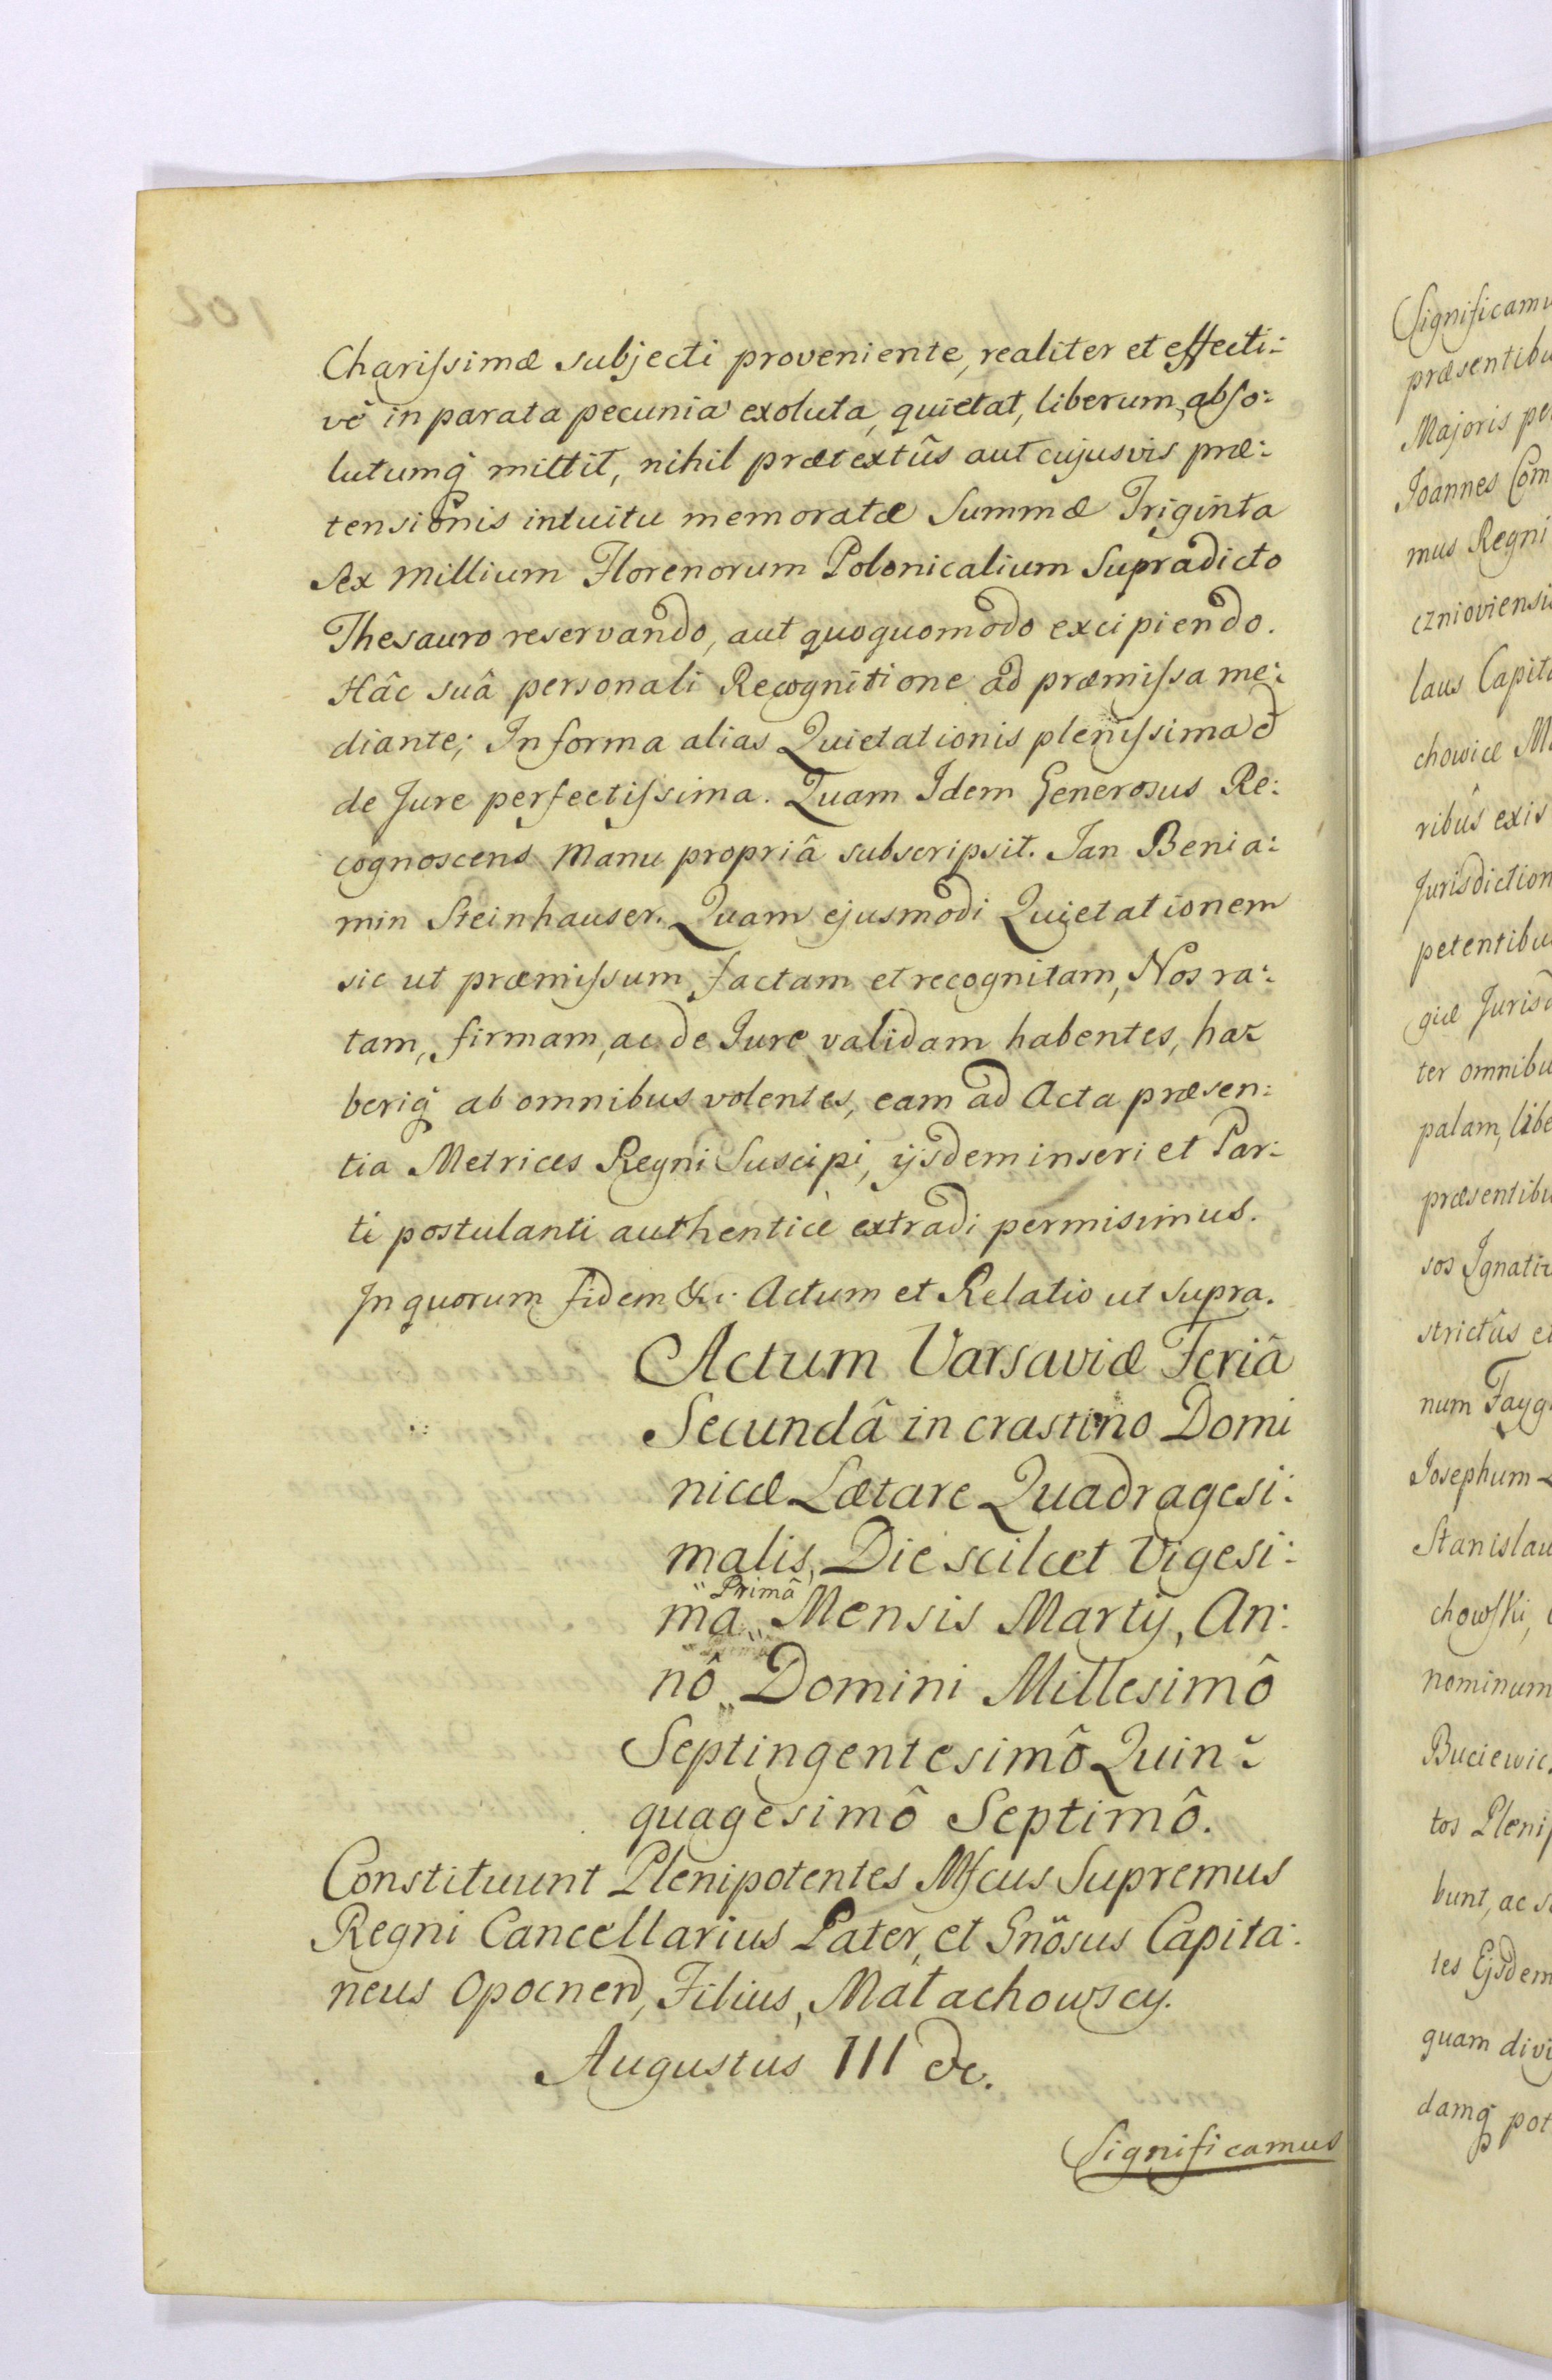 Charissimæ subjecti proveniente, realiter et effecti:
vè in parata pecunia exoluta, quietat, liberum, abso:
lutumq mittit, nihil prætextûs aut cujusvis præ:
tensionis intuitu memoratæ Summæ Triginta
sex Millium Florenorum Polonicalium Supradicto
Thesauro reservando, aut quoquomodo excipiendo.
Hâc suâ personali Recognitione ad præmissa me:
diante; In forma alias Quietationis plenissima &
de Jure perfectissima. Quam Idem Generosus Re:
cognoscens Manu propriâ subscripsit. Jan Benia:
min Steinhauser. Quam ejusmodi Quietationem
sic ut præmissum, factam et recognitam, Nos ra:
tam, firmam, ac de Jure validam habentes, ha:
beriq ab omnibus volentes, eam ad Acta præsen:
tia Metrices Regni Suscipi, ijsdem inseri et Par:
ti postulanti authenticè extradi permisimus.
In quorum fidem &c. Actum et Relatio ut supra.
Actum Varsaviæ Feriâ
Secundâ in crastino Domi
nicæ Lætare Quadragesi:
malis, Die scilcet Vigesi:
Primâ
ma Mensis Martij, An:
nô Domini Millesimô
Septingentesimô Quin:
quagesimô Septimô.
Constituunt Plenipotentes Mfcus Supremus
Regni Cancellarius Pater, et Gnosus Capita:
neus Opocnen, Filius, Małachowscy.
Augustus III &c.
Significamus
102
Significamu
præsentibu
Majoris pe
Joannes Com
mus Regni
cznioviensis
laus Capita
chowice Ma
ribûs exis
Jurisdiction
petentibu
giæ Jurisd
ter omnibu
palam, libe
præsentibu
sos Ignati
strictûs et
num Fayg
Josephum
Stanislau
chowski,
nominum
Buciewic
tos Plenip
bunt, ac s
tes Ejsdem
quam divi
damq pot